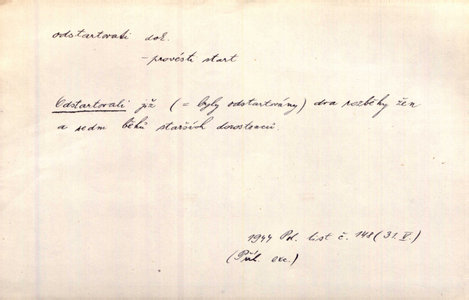 odstartovati dok.
- provésti start
Odstartovali již (= byly odstartovány) dva rozběhy žen
a sedm běhů starších dorostenců.
1944 Pol. list č. 148 (31. V.)
(Příl. exc.)